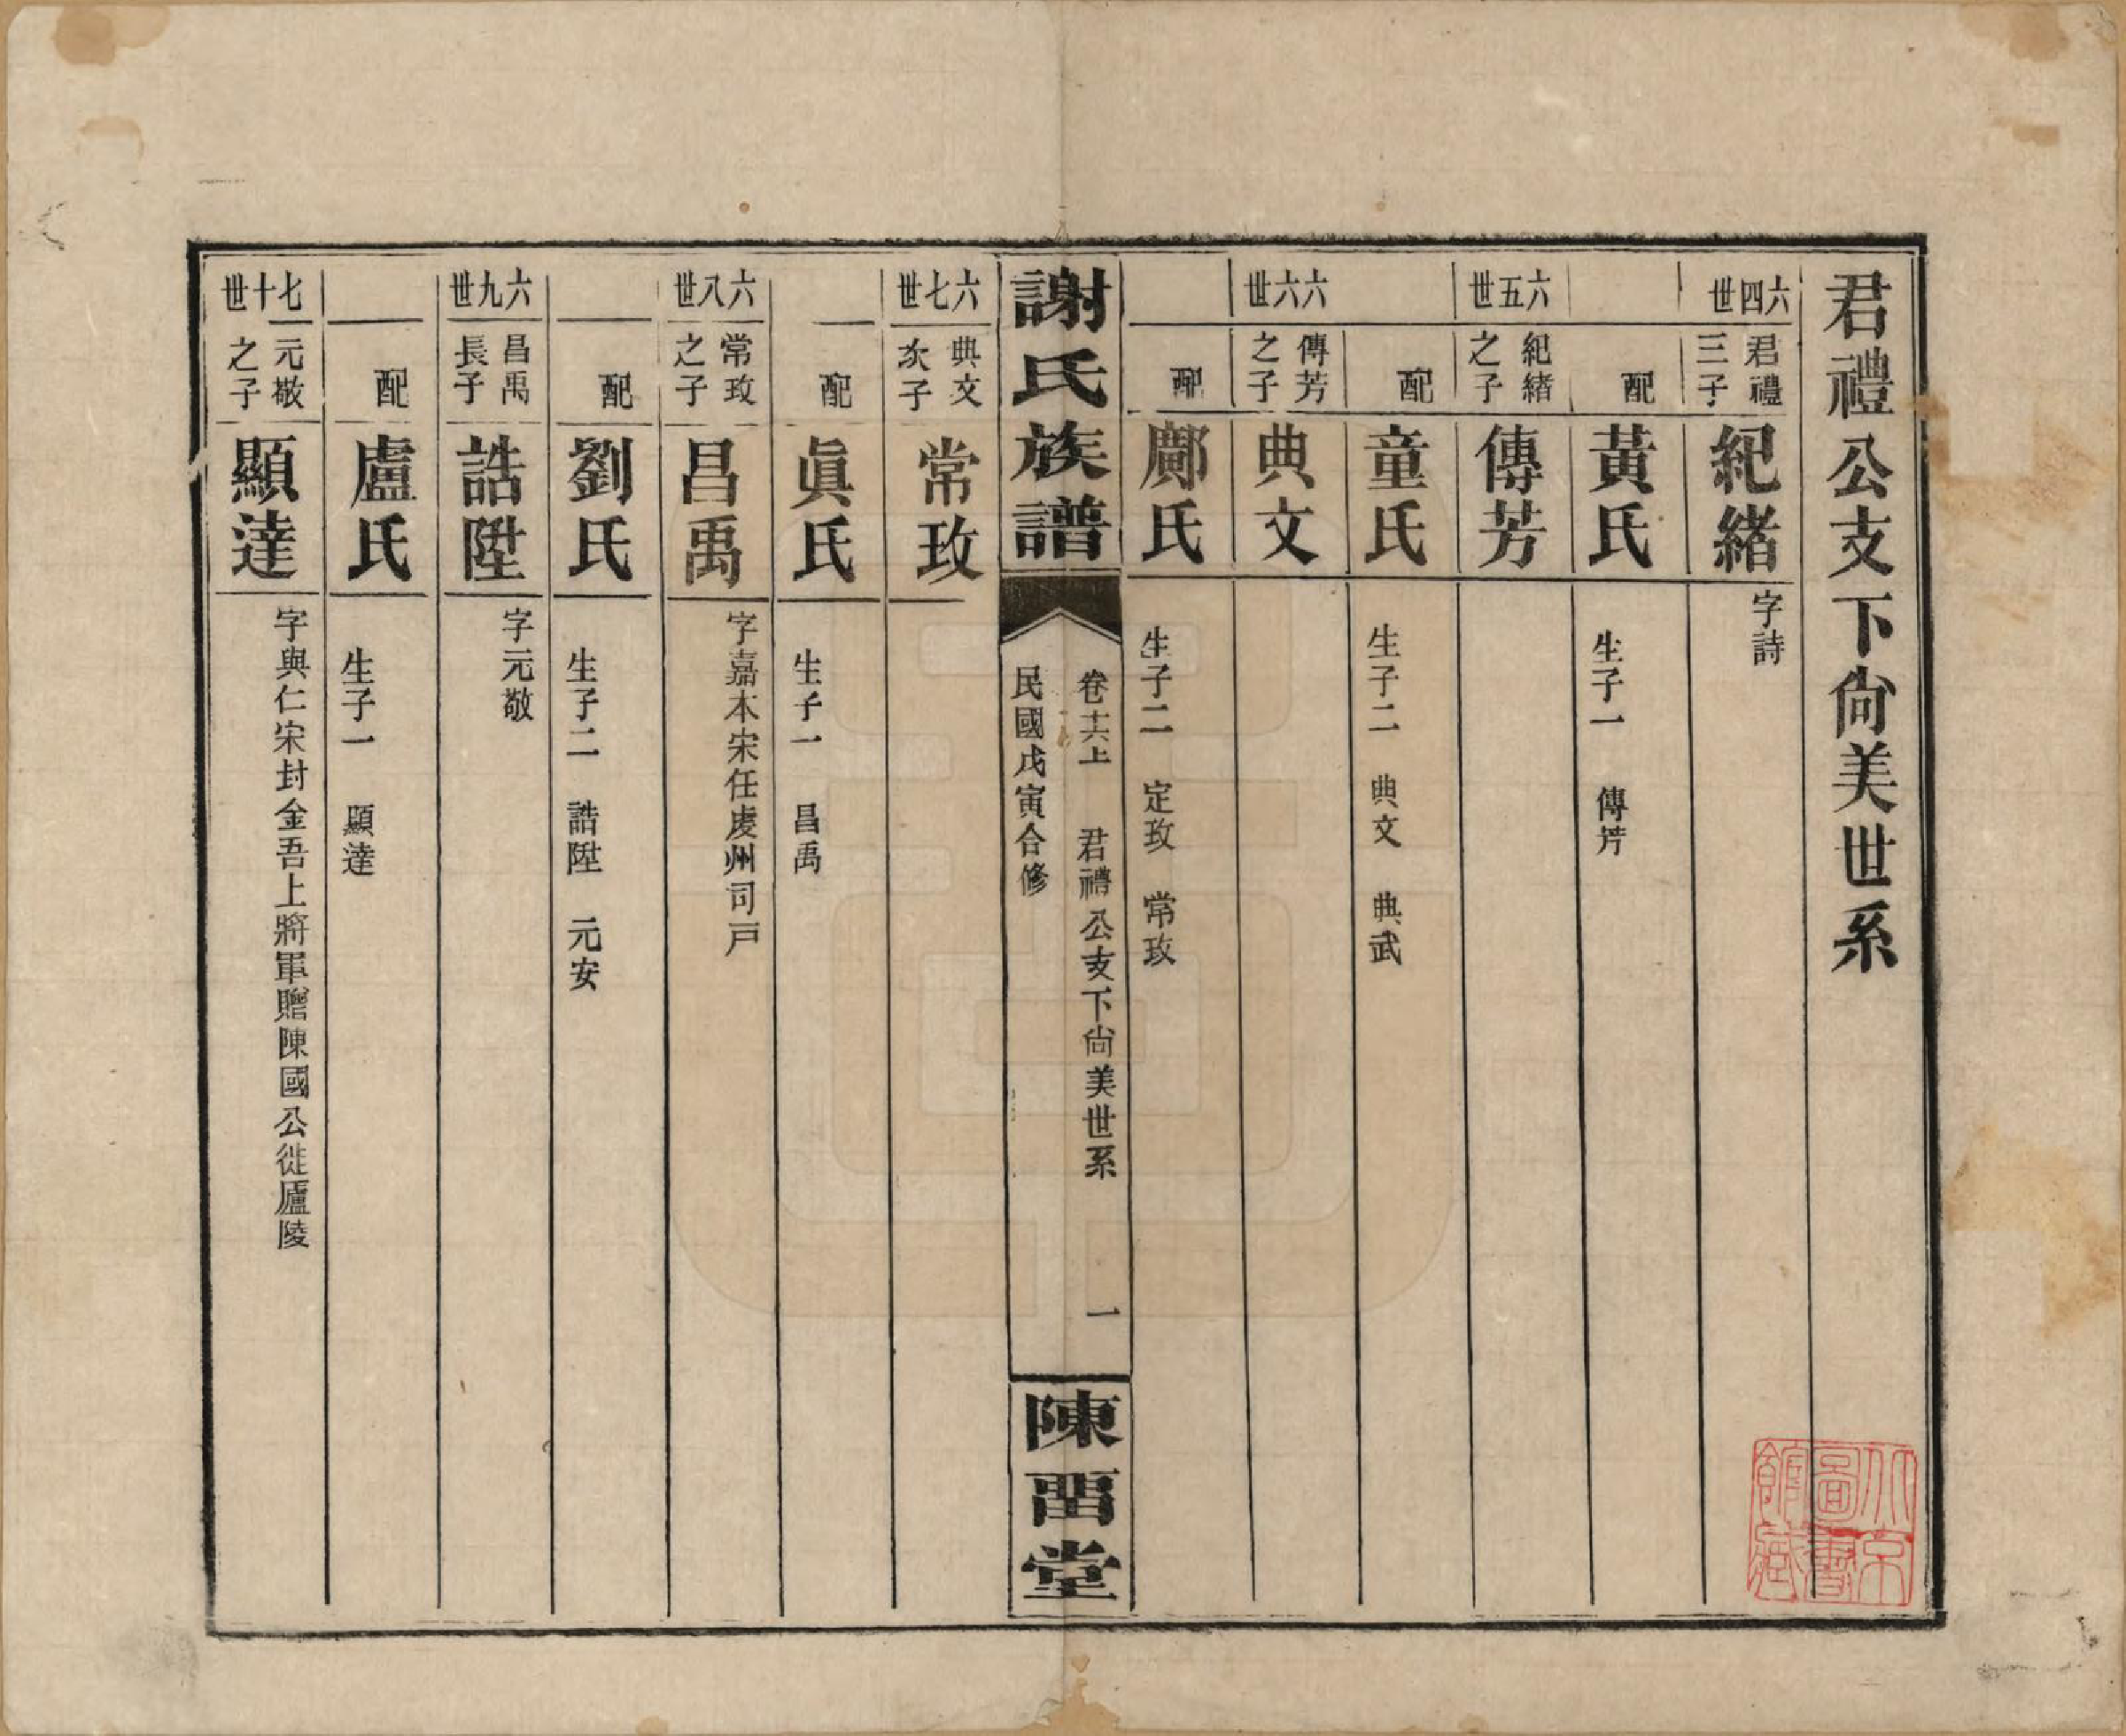 君禮公支下尙美世系
六四世 君禮三子 紀緒 字詩
配 黃氏 生子一 傳芳
六五世 紀緒之子 傳芳
配 童氏 生子二 典文 典武
六六世 傳芳之子 典文
配 鄺氏 生子二 定玫 常玫
謝氏族譜 卷十六上 君禮公支下尙美世系 一
民國戊寅合修
陳畱堂
六七世 典文次子 常玫
配 眞氏 生子一 昌禹
六八世 常玫之子 昌禹 字嘉木宋任虔州司戶
配 劉氏 生子二 誥陞 元安
六九世 昌禹長子 誥陞 字元敬
配 盧氏 生子一 顯達
七十世 元敬之子 顯達 字與仁宋封金吾上將軍贈陳國公徙廬陵
北京圖書館藏